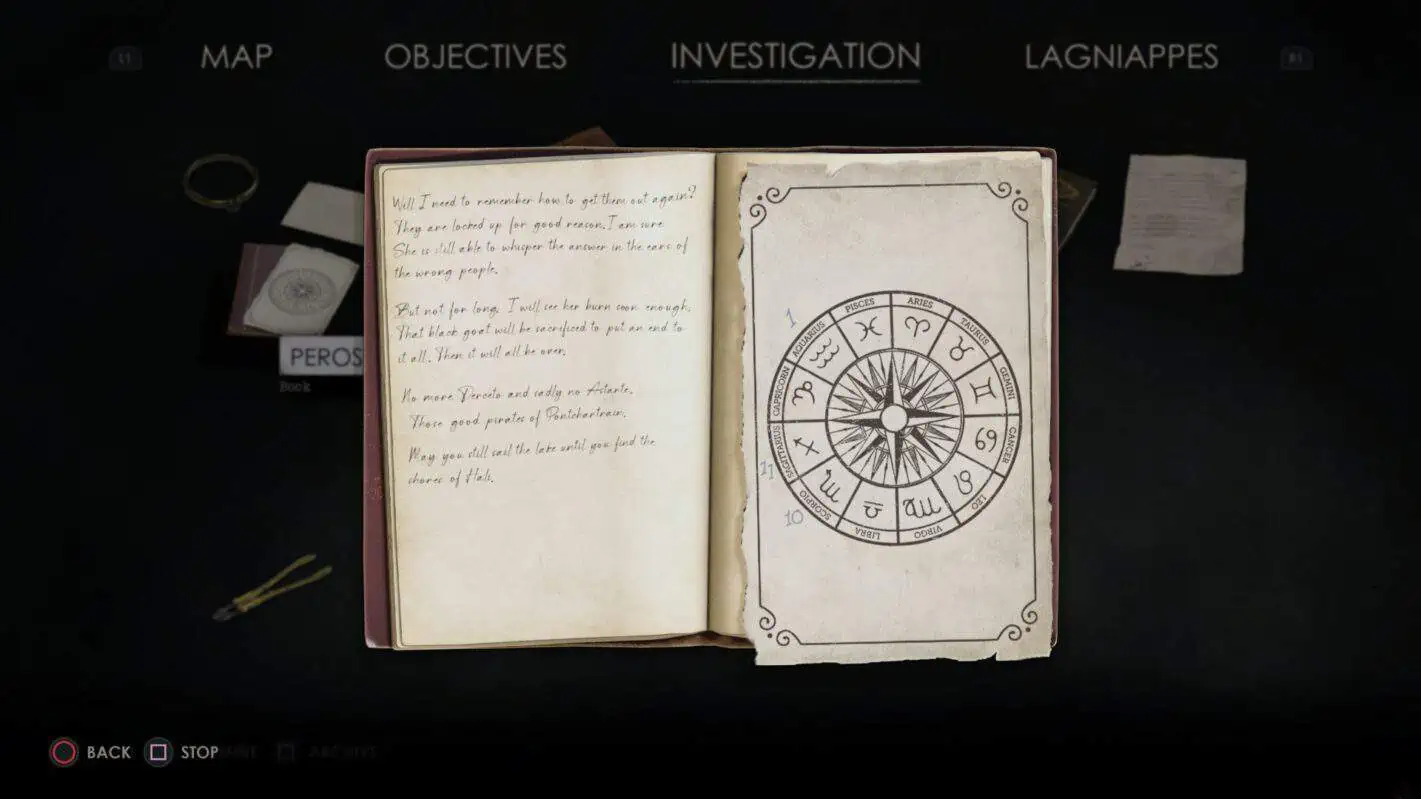 L1
MAP
OBJECTIVES
INVESTIGATION
LAGNIAPPES
R1
Well I need to remember how to get them out again?
They are locked up for good reason. I am sure
She is still able to whisper the answer in the ears of
the wrong people.
But not for long. I will see her burn soon enough.
That black goat will be sacrificed to put an end to
it all. Then it will all be over.
No more Perceto and sadly no Astarte.
Those good pirates of Pontchartrain.
May you still sail the lake until you find the
shores of Hali.
PEROS
Book
1
11
10
PISCES
ARIES
TAURUS
GEMINI
CANCER
LEO
VIRGO
LIBRA
SCORPIO
SAGITTARIUS
CAPRICORN
AQUARIUS
BACK
STOP
ARCHIVE